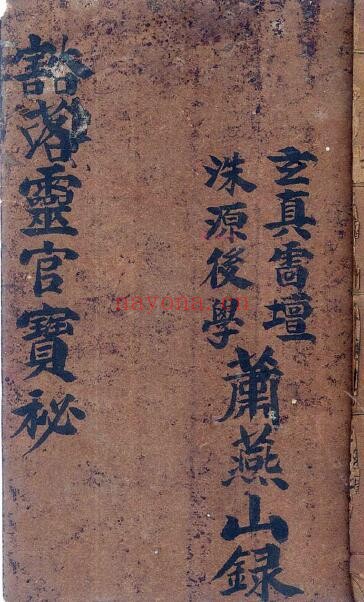 玄真雷壇
洙源後學
蕭燕山録
豁落靈官寶秘
nayona.cn